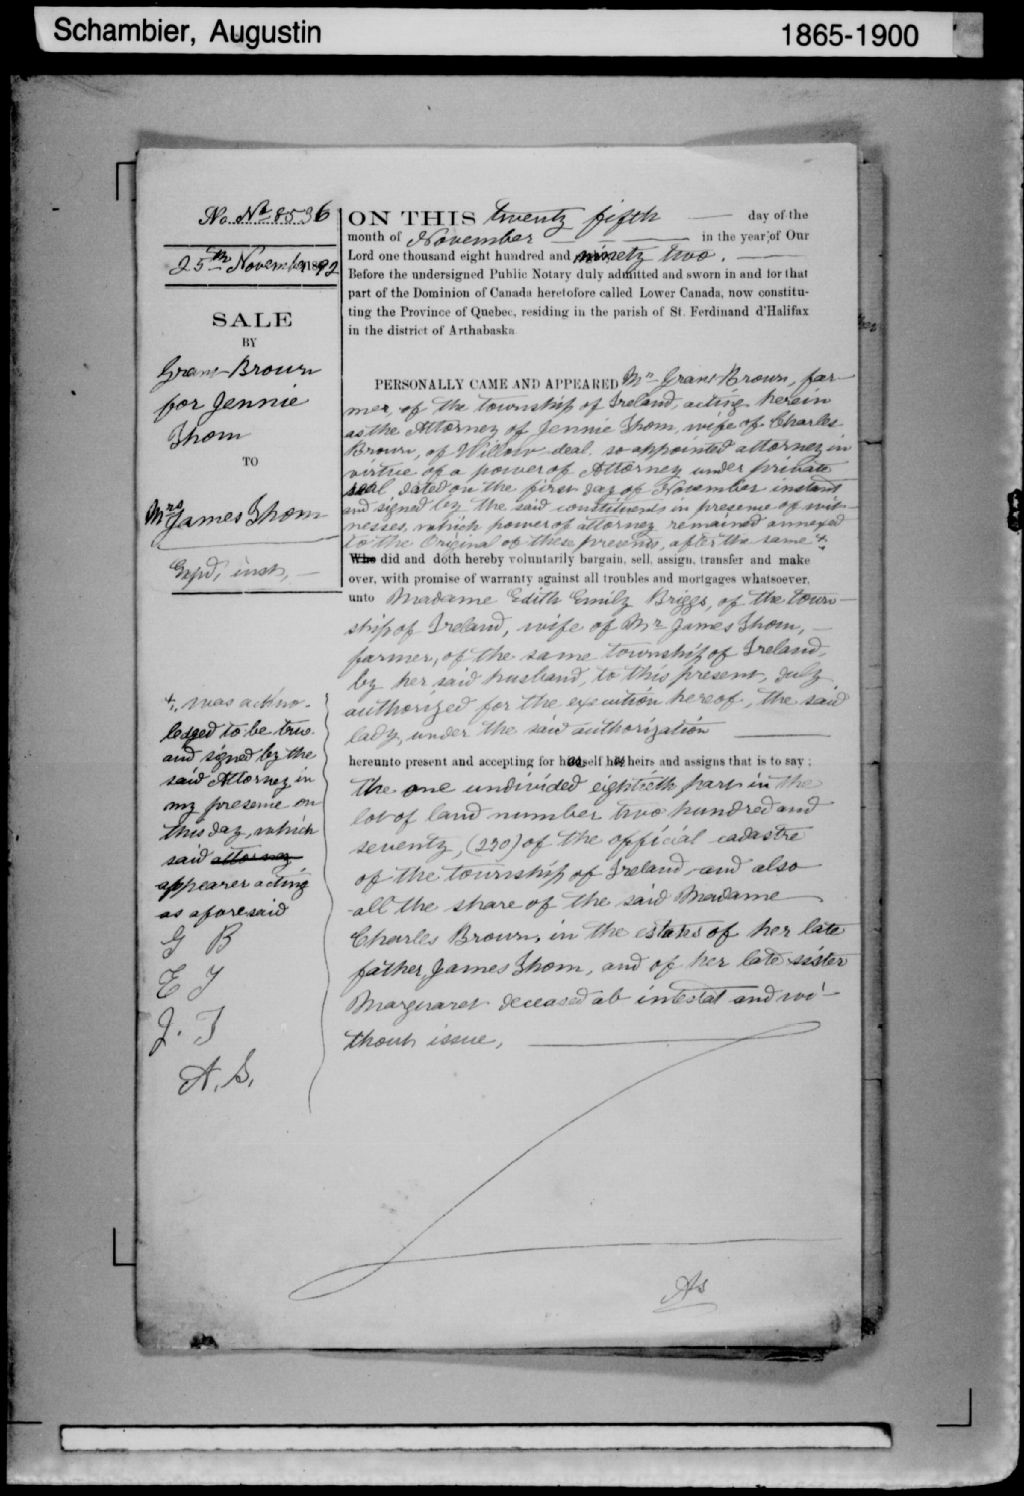 Schambier, Augustin
1865-1900
No. No. 8536
25th November 1892
SALE
BY
Grant Brown
for Jennie
Thom
TO
Mrs James Thom
Expd, inst, —
ON THIS twenty fifth — day of the
month of November — in the year of Our
Lord one thousand eight hundred and ninety two. —
Before the undersigned Public Notary duly admitted and sworn in and for that
part of the Dominion of Canada heretofore called Lower Canada, now constitu-
ting the Province of Quebec, residing in the parish of St. Ferdinand d'Halifax
in the district of Arthabaska
PERSONALLY CAME AND APPEARED Mr Grant Brown, far-
mer, of the township of Ireland, acting herein
as the Attorney of Jennie Thom, wife of Charles
Brown, of Willow deal so appointed attorney in
virtue of a power of Attorney under private
seal, dated on the first day of November instant
and signed by the said constituents in presence of wit-
nesses, which power of attorney remained annexed
to the Original of these presents, after the same +.
Who did and doth hereby voluntarily bargain, sell, assign, transfer and make
over, with promise of warranty against all troubles and mortgages whatsoever,
unto Madame Edith Emily Briggs, of the town-
ship of Ireland, wife of Mr James Thom, —
farmer, of the same township of Ireland,
by her said husband, to this present, duly
authorized for the execution hereof, the said
lady, under the said authorization —
hereunto present and accepting for herself her heirs and assigns that is to say :
the one undivided eightieth part in the
lot of land number two hundred and
seventy, (270) of the official cadastre
of the township of Ireland and also
all the share of the said Madame
Charles Brown, in the estates of her late
father, James Thom, and of her late sister
Marguaret deceased ab intestat and wi-
thout issue, —
+. was ackno-
ledged to be true
and signed by the
said Attorney in
my presence on
this day, which
said attorney
appearer acting
as aforesaid
G B
E T
J. T
A. S.
As